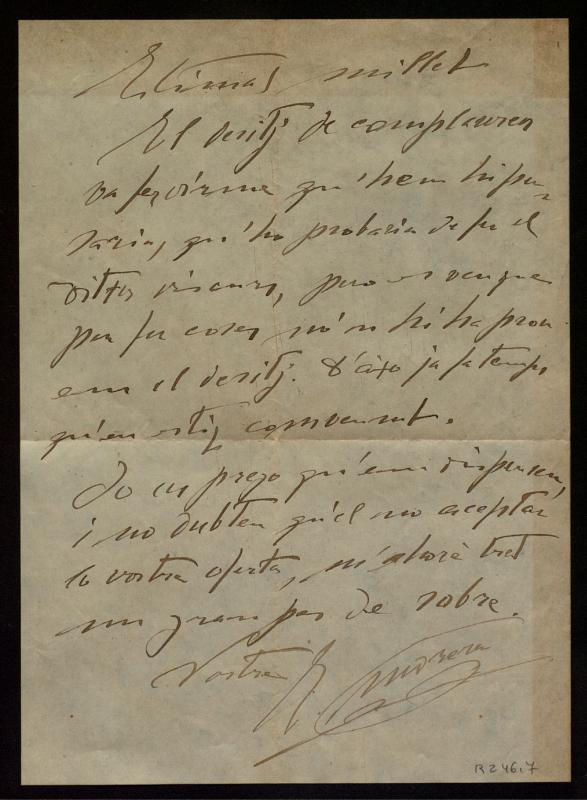 Estimat Millet
El desitj de complaurer
va fer dirme qu'hem hi pu-
saria, qu'ho probaria de fer el
ditxos discurs, pero es veu que
per fer coses no n'hi ha prou
em el desitj. D'aixo ja fa temps
qu'en estig convensut.
Jo us prego qu'em dispenseu,
i no dubteu qu'el no aceptar
la vostra oferta, m'haura tret
un gran pes de sobre.
Vostre E. Morera
R 246,7